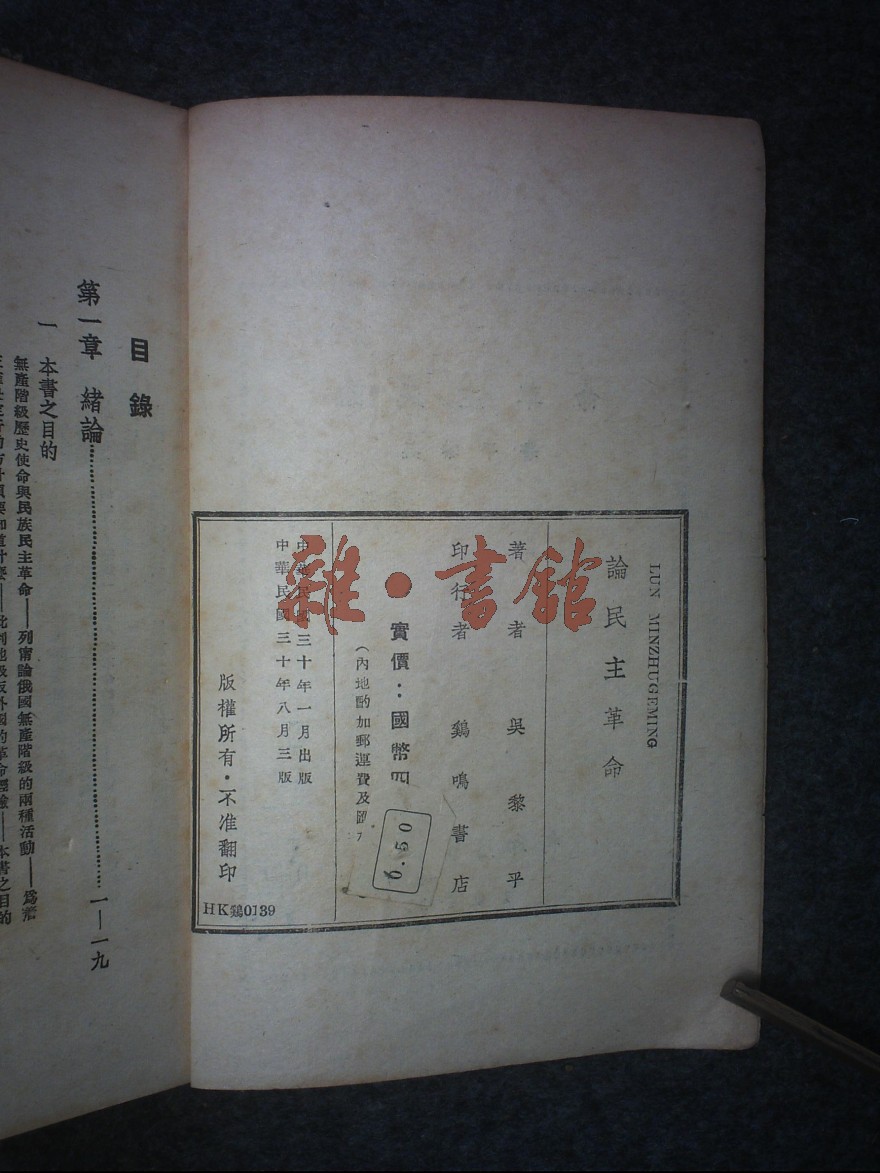 LUN MINZHUGEMING
論民主革命
著者 吳黎平
印行者 鷄鳴書店
實價：國幣四
（內地酌加郵運費及匯
中華民國三十年一月出版
中華民國三十年八月三版
版權所有・不准翻印
HK鷄0139
0.50
雜・書館
目錄
第一章 緒論……一—一九
一 本書之目的
無產階級歷史使命與民族民主革命——列甯論俄國無產階級的兩種活動——爲
本書之目的